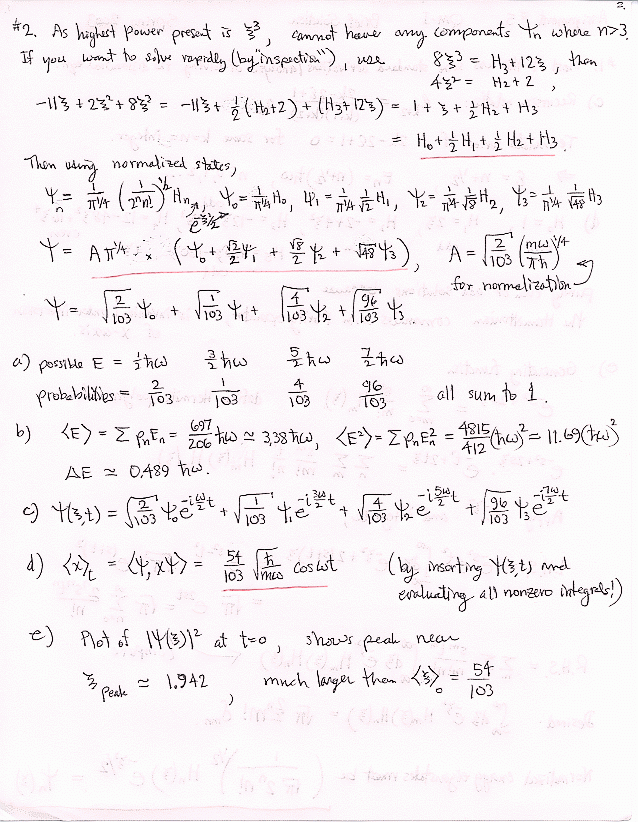 2.
#2. As highest power present is ξ³, cannot have any components Ψn where n>3.
If you want to solve rapidly (by "inspection"), use 8ξ³ = H₃+12ξ, then
4ξ² = H₂+2,
-11ξ + 2ξ² + 8ξ³ = -11ξ + ½(H₂+2) + (H₃+12ξ) = 1 + ξ + ½H₂ + H₃
= H₀ + ½H₁ + ½H₂ + H₃
Then using normalized states,
Ψn = 1/π^¼ (1/2ⁿn!)^½ Hn, Ψ₀ = 1/π^¼ H₀, Ψ₁ = 1/π^¼ 1/√2 H₁, Ψ₂ = 1/π^¼ 1/√8 H₂, Ψ₃ = 1/π^¼ 1/√48 H₃
e^-ξ²/2
Ψ = A π^¼ x (Ψ₀ + √2/2 Ψ₁ + √8/2 Ψ₂ + √48 Ψ₃), A = √(2/103) (mω/πħ)^¼
for normalization
Ψ = √(2/103) Ψ₀ + √(1/103) Ψ₁ + √(4/103) Ψ₂ + √(96/103) Ψ₃
a) possible E = ½ħω 3/2 ħω 5/2 ħω 7/2 ħω
probabilities = 2/103 1/103 4/103 96/103 all sum to 1.
b) ⟨E⟩ = Σ pnEn = 697/206 ħω ≃ 3.38 ħω, ⟨E²⟩ = Σ pnEn² = 4815/412 (ħω)² ≃ 11.69(ħω)²
ΔE ≃ 0.489 ħω.
c) Ψ(ξ,t) = √(2/103) Ψ₀e^-iω/2 t + √(1/103) Ψ₁e^-i3ω/2 t + √(4/103) Ψ₂e^-i5ω/2 t + √(96/103) Ψ₃e^-i7ω/2 t
d) ⟨x⟩t = ⟨Ψ, xΨ⟩ = 54/103 √(ħ/mω) cos ωt (by inserting Ψ(ξ,t) and
evaluating all nonzero integrals!)
e) Plot of |Ψ(ξ)|² at t=0, shows peak near
ξpeak ≃ 1.942, much larger than ⟨ξ⟩₀ = 54/103